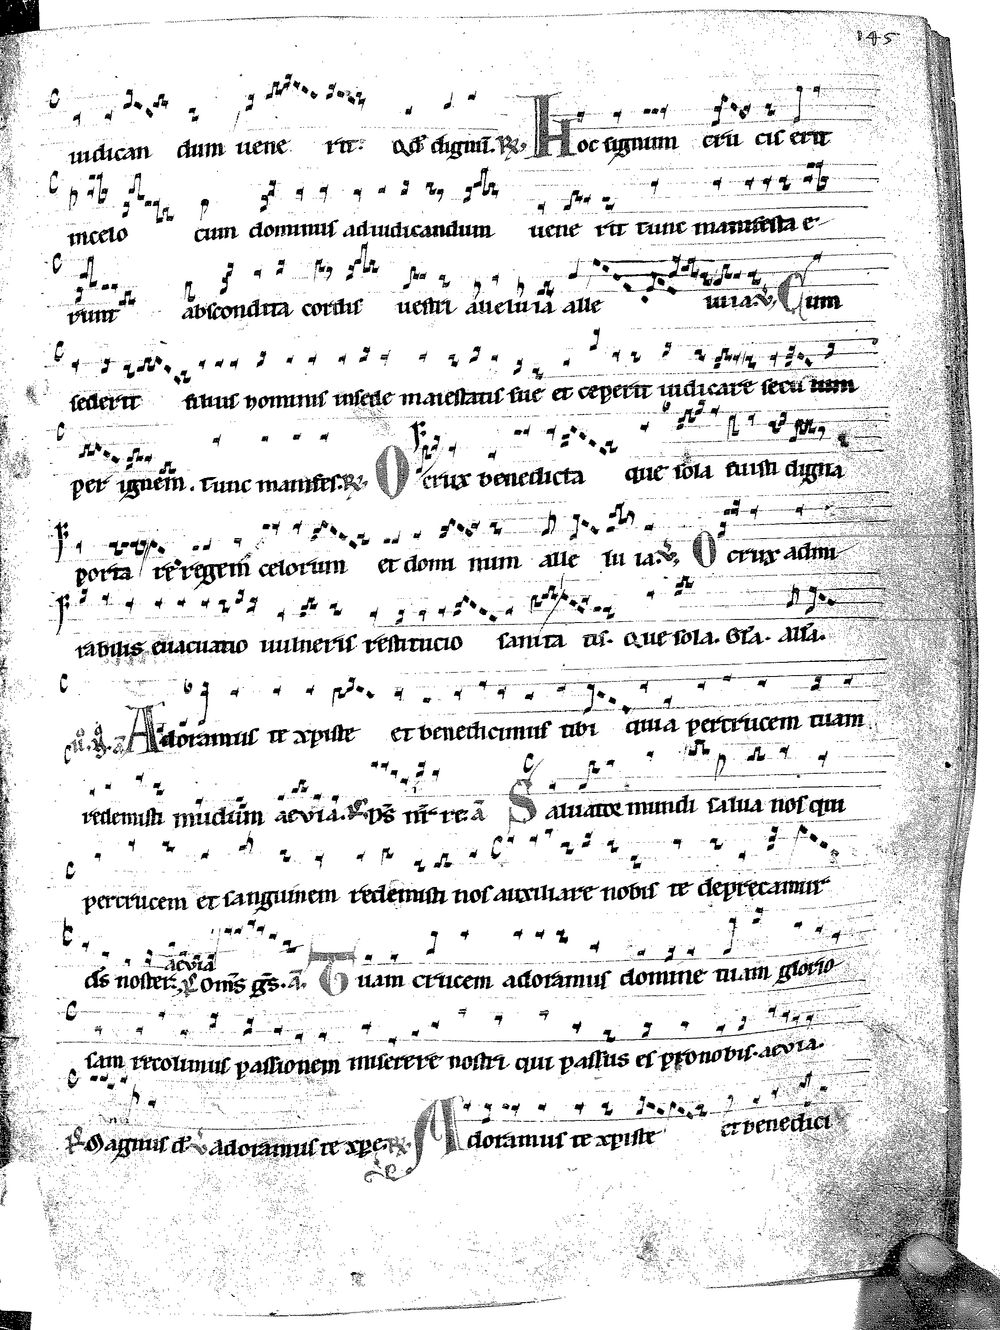 145
iudican dum uene rit. Qd digni. R. Hoc signum cru cis erit
incelo cum dominus adiudicandum uene rit tunc manifesta e
runt abscondita cordis uestri aueluia alle luia. V. Cum
sederit filius hominis insede maiestatis sue et ceperit iudicare seculum
per ignem. Tunc manifes. R. O crux benedicta que sola fuisti digna
porta re regem celorum et domi num alle lu ia. V. O crux admi
rabilis euacuatio uulneris restitucio sanita tis. Que sola. Gla. alla.
Adoramus te xpiste et benedicimus tibi quia percrucem tuam
redemisti mudum aeuia. Ps nr re a Saluator mundi salua nos qui
percrucem et sanguinem redemisti nos auxiliare nobis te deprecamur
ds noster. aeuia Oms gs. a. Tuam crucem adoramus domine tuam glorio
sam recolimus passionem miserere nostri qui passus es pronobis. aeuia.
Magnus d. V adoramus te xpe. R. Adoramus te xpiste et benedici